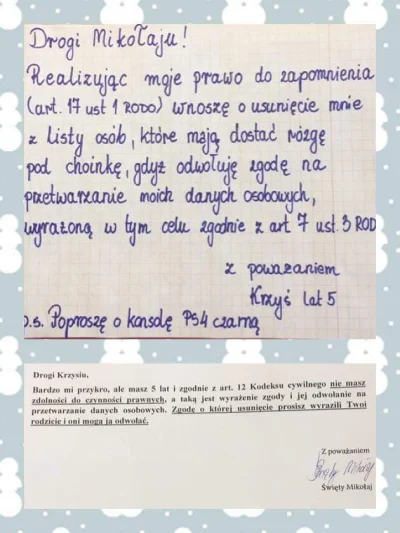 Drogi Mikołaju!
Realizując moje prawo do zapomnienia
(art. 17 ust 1 RODO) wnoszę o usunięcie mnie
z listy osób, które mają dostać rózgę
pod choinkę, gdyż odwołuję zgodę na
przetwarzanie moich danych osobowych,
wyrażoną w tym celu zgodnie z art 7 ust. 3 ROD
z poważaniem
Krzyś lat 5
p.s. Poproszę o konsolę PS4 czarną
Drogi Krzysiu,
Bardzo mi przykro, ale masz 5 lat i zgodnie z art. 12 Kodeksu cywilnego nie masz
zdolności do czynności prawnych, a taką jest wyrażenie zgody i jej odwołanie na
przetwarzanie danych osobowych. Zgodę o której usunięcie prosisz wyrazili Twoi
rodzice i oni mogą ją odwołać.
Z poważaniem
Święty Mikołaj
Święty Mikołaj